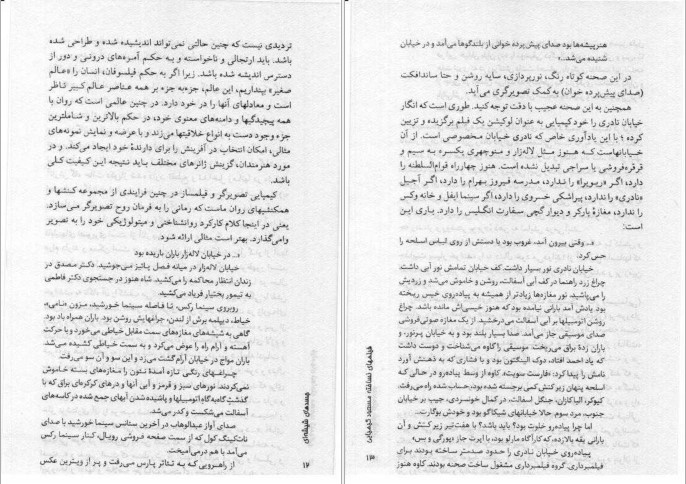 تردیدی نیست که چنین حالتی نمی‌تواند اندیشیده شده و طراحی شده
باشد. باید ارتجالی و ناخواسته و به حکم آمزه‌های درونی و دور از
دسترس اندیشه شده باشد. زیرا اگر به حکم فیلسوفان، انسان را «عالم
صغیر» بپنداریم، این عالم، جزءبه جزء بر همه عناصر عالم کبیر ناظر
است و معادلهای آنها را در خود دارد. در چنین عالمی است که روان با
همه پیچیدگیها و دامنه‌های معنوی خود، در حکم بالاترین و شاملترین
جزء وجود دست به انواع خلاقیتها می‌زند و با عرضه و نمایش نمونه‌های
مثالی، امکان انتخاب در آفرینش را برای دارندهٔ خود ایجاد می‌کند. و در
مورد هنرمندان، گزینش ژانرهای مختلف باید نتیجه این کیفیت کلی
باشد.
کیمیایی تصویرگر و فیلمساز در چنین فرایندی از مجموعه کنشها و
همکنشیهای روان ماست که رمانی را به فرمان روح تصویرگر می‌سازد.
یعنی در اینجا کلام کارکرد روانشناختی و میتولوژیکی خود را به تصویر
وامی‌گذارد. بهتر است مثالی ارائه شود.
«... در خیابان لاله‌زار باران باریده بود
خیابان لاله‌زار در میانه فصل پائیز می‌جوشید. دکتر مصدق در
زندان انتظار محاکمه را می‌کشید. شاه هنوز در جستجوی دکتر فاطمی
به تیمور بختیار فریاد می‌کشید.
روبروی سینما رکس، تا فاصله سینما خورشید، مزون «نامی»،
خیاط، دیپلمه برش از لندن، چراغهایش روشن بود. باران همراه باد بود.
گاهی به شیشه‌های مغازه‌های سمت مقابل خیاطی می‌خورد و با حرکت
آهسته و آرام راه را عوض می‌کرد و به سمت خیاطی کشیده می‌شد.
باران مواج در خیابان آرام گشت می‌زد و این سو و آن سو می‌رفت.
چراغهای رنگی تازه آمدهٔ نئون را مغازه‌های بسته خاموش
نمی‌کردند. نورهای سبز و قرمز و آبی آنها و درهای کرکره‌ای براق که با
گذشتِ گاه‌به‌گاهِ اتومبیلها و پاشیده شدن آبهای جمع شده در کاسه‌های
آسفالت می‌شکست و کدر می‌شد.
صدای آواز عبدالوهاب در آخرین سئانس سینما خورشید با صدای
نات‌کینگ کول که از سمت صفحه فروشی رویال، کنار سینما رکس
می‌آمد با هم درمی‌آمیخت.
از راهرویی که به تئاتر پارس می‌رفت و پر از ویترین عکس
مجسمه‌ی شیشه‌ای
۱۲
هنرپیشه‌ها بود صدای پیش‌پرده خوانی از بلندگوها می‌آمد و در خیابان
شنیده می‌شد.»
در این صحنه کوتاه رنگ، نورپردازی، سایه روشن و حتا ساندافکت،
(صدای پیش‌پرده خوان) به کمک تصویرگری می‌آید.
همچنین به این صحنه عجیب با دقت توجه کنید. طوری است که انگار
خیابان نادری را خود کیمیایی به عنوان لوکیشن یک فیلم برگزیده و تزیین
کرده؛ با این یادآوری خاص که نادری خیابان مخصوصی است. از آن
خیابانهاست که هنوز مثل لاله‌زار و منوچهری یکسره به سیم و
قرقره‌فروشی یا سراجی تبدیل نشده است. هنوز چهارراه قوام‌السلطنه را
دارد، اگر «ریویرا» را ندارد، مدرسه فیروز بهرام را دارد، اگر آجیل
«نادری» را ندارد، پیراشکی خسروی را دارد، اگر سینما ایفل و خانه وکس
را ندارد، مغازهٔ پارکر و دیوار گچی سفارت انگلیس را دارد. باری این
است:
«... وقتی بیرون آمد، غروب بود با دستش از روی لباس اسلحه را
حس کرد.
خیابان نادری نور بسیار داشت. کف خیابان تماماش نور آبی داشت.
چراغ زرد راهنما در کف آبی آسفالت، روشن و خاموش می‌شد و زردیش
را می‌پاشید. نور مغازه‌ها زیادتر از همیشه به پیاده‌روی خیس ریخته
بود. یادش آمد بارانی نیامده بود که هنوز خیسی‌اش مانده باشد. چراغ
روشن اتومبیلها بر آبی آسفالت می‌درخشید. از یک مغازه صوتی‌فروشی
صدای موسیقی جاز می‌آمد. صدا بسیار بلند بود و به خیابان پرنور و
باران زدهٔ براق می‌ریخت. موسیقی را گاوه می‌شناخت و دوست داشت
که یاد احمد افتاد، دوک الینگتون بود و با فشاری که به ذهنش آورد
نامش را پیدا کرد: «فارست سویت». کاوه از وسط پیاده‌رو در حالی که
اسلحه پنهان زیر کتش کمی برجسته شده بود، حساب شده راه می‌رفت.
کیوکر، الیاکازان، جنگل آسفالت، در کمال خونسردی، جیب بر خیابان
جنوب، مرد سوم. حالا خیابانهای شیکاگو بود و خودش بوگارت.
اما چرا پیاده‌رو خلوت بود؟ باید باشد؟ با هفت‌تیر زیر کتش و آن
بارانی یقه بالازده، که کارآگاه مارلو بود، با ایرت جاز «پورگی و بس».
پیاده‌روی خیابان نادری را حدود صدمتر ساخته بودند برای
فیلمبرداری. گروه فیلمبرداری مشغول ساخت صحنه بودند. کاوه هنوز
۱۳